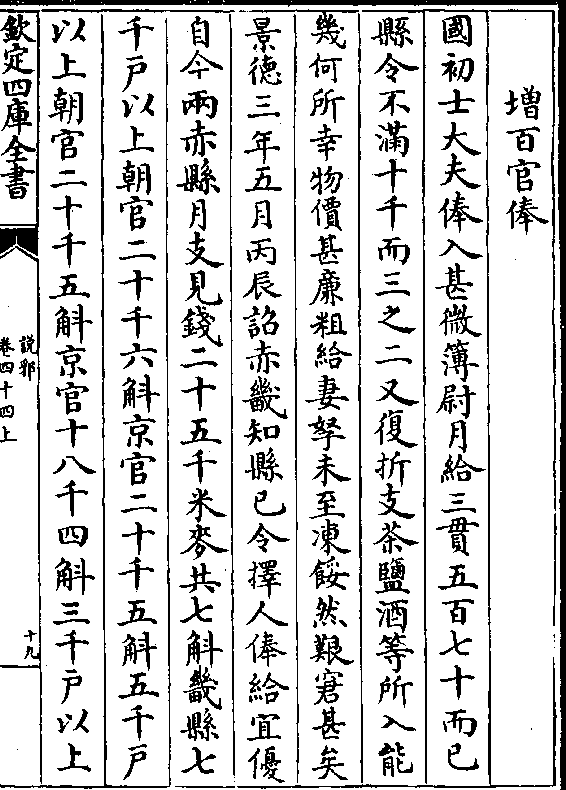 増百官俸
國初士大夫俸入甚微簿尉月給三貫五百七十而已
縣令不滿十千而三之二又復折支茶鹽酒等所入能
幾何所幸物價甚廉粗給妻孥未至凍餒然艱窘甚矣
景德三年五月丙辰詔赤畿知縣已令擇人俸給宜優
自今兩赤縣月支見錢二十五千米麥共七斛畿縣七
千戸以上朝官二十千六斛京官二十千五斛五千戸
以上朝官二十千五斛京官十八千四斛三千戸以上
欽定四庫全書
說郛
卷四十四上
十九